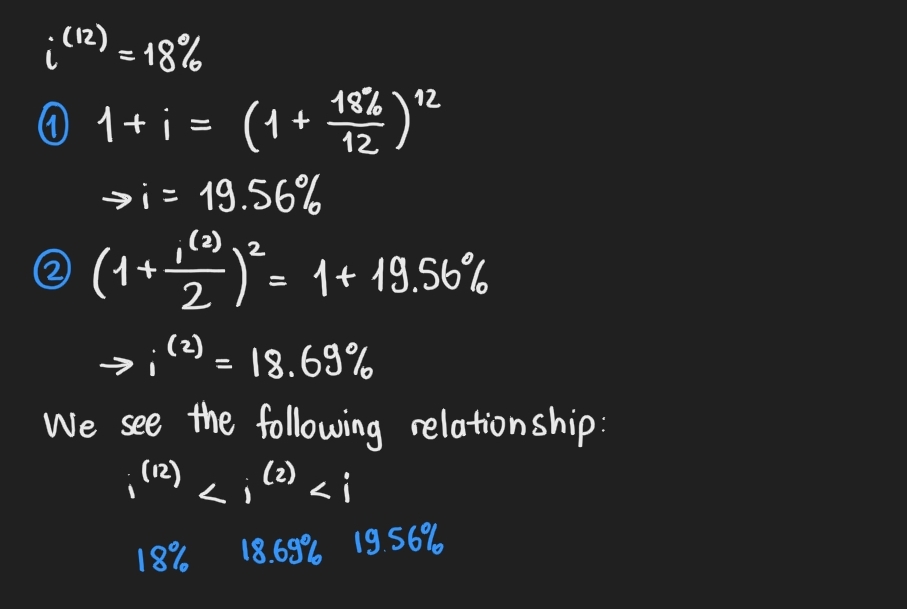 i^(12) = 18%
① 1 + i = (1 + 18%/12)^12
→ i = 19.56%
② (1 + i^(2)/2)^2 = 1 + 19.56%
→ i^(2) = 18.69%
We see the following relationship:
i^(12) < i^(2) < i
18% 18.69% 19.56%